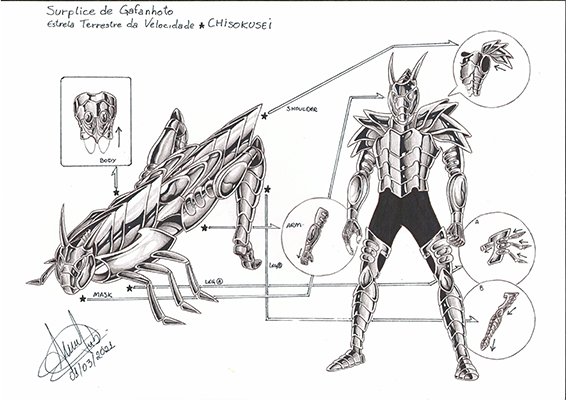 Surplice de Gafanhoto
Estrela Terrestre da Velocidade ★ CHISOKUSEI
SHOULDER
BODY
ARM
A
LEG Ⓑ
LEG Ⓐ
B
MASK
01/03/2021